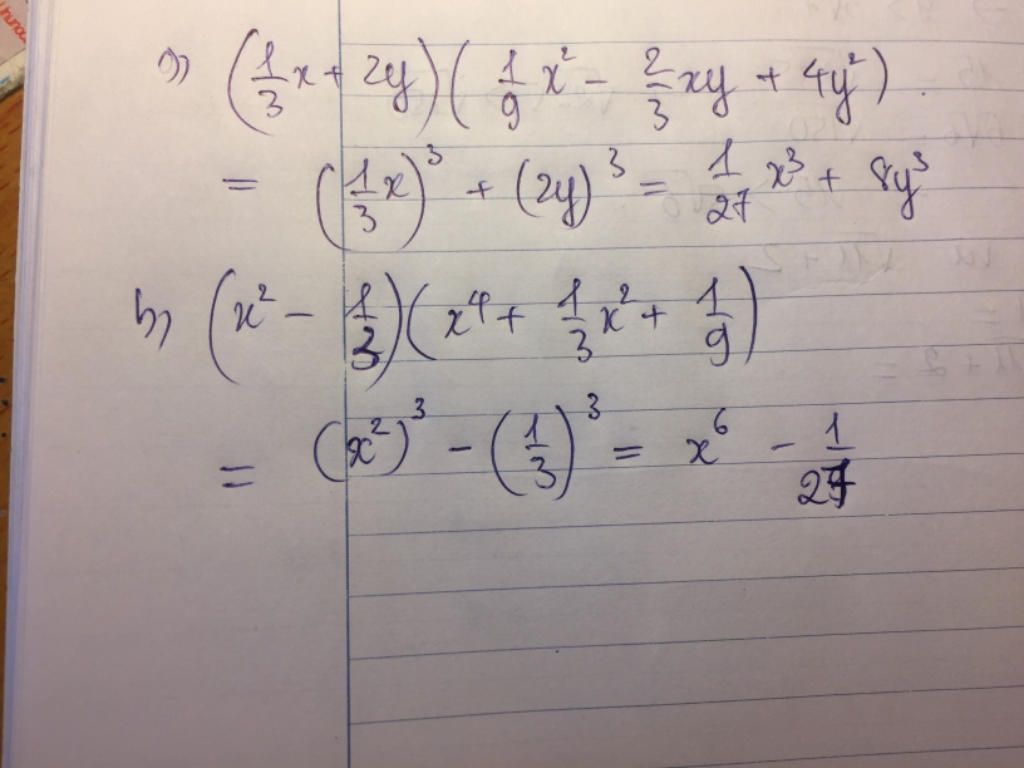 a) (1/3 x + 2y)(1/9 x² - 2/3 xy + 4y²).
= (1/3 x)³ + (2y)³ = 1/27 x³ + 8y³
b) (x² - 1/3)(x⁴ + 1/3 x² + 1/9)
= (x²)³ - (1/3)³ = x⁶ - 1/27